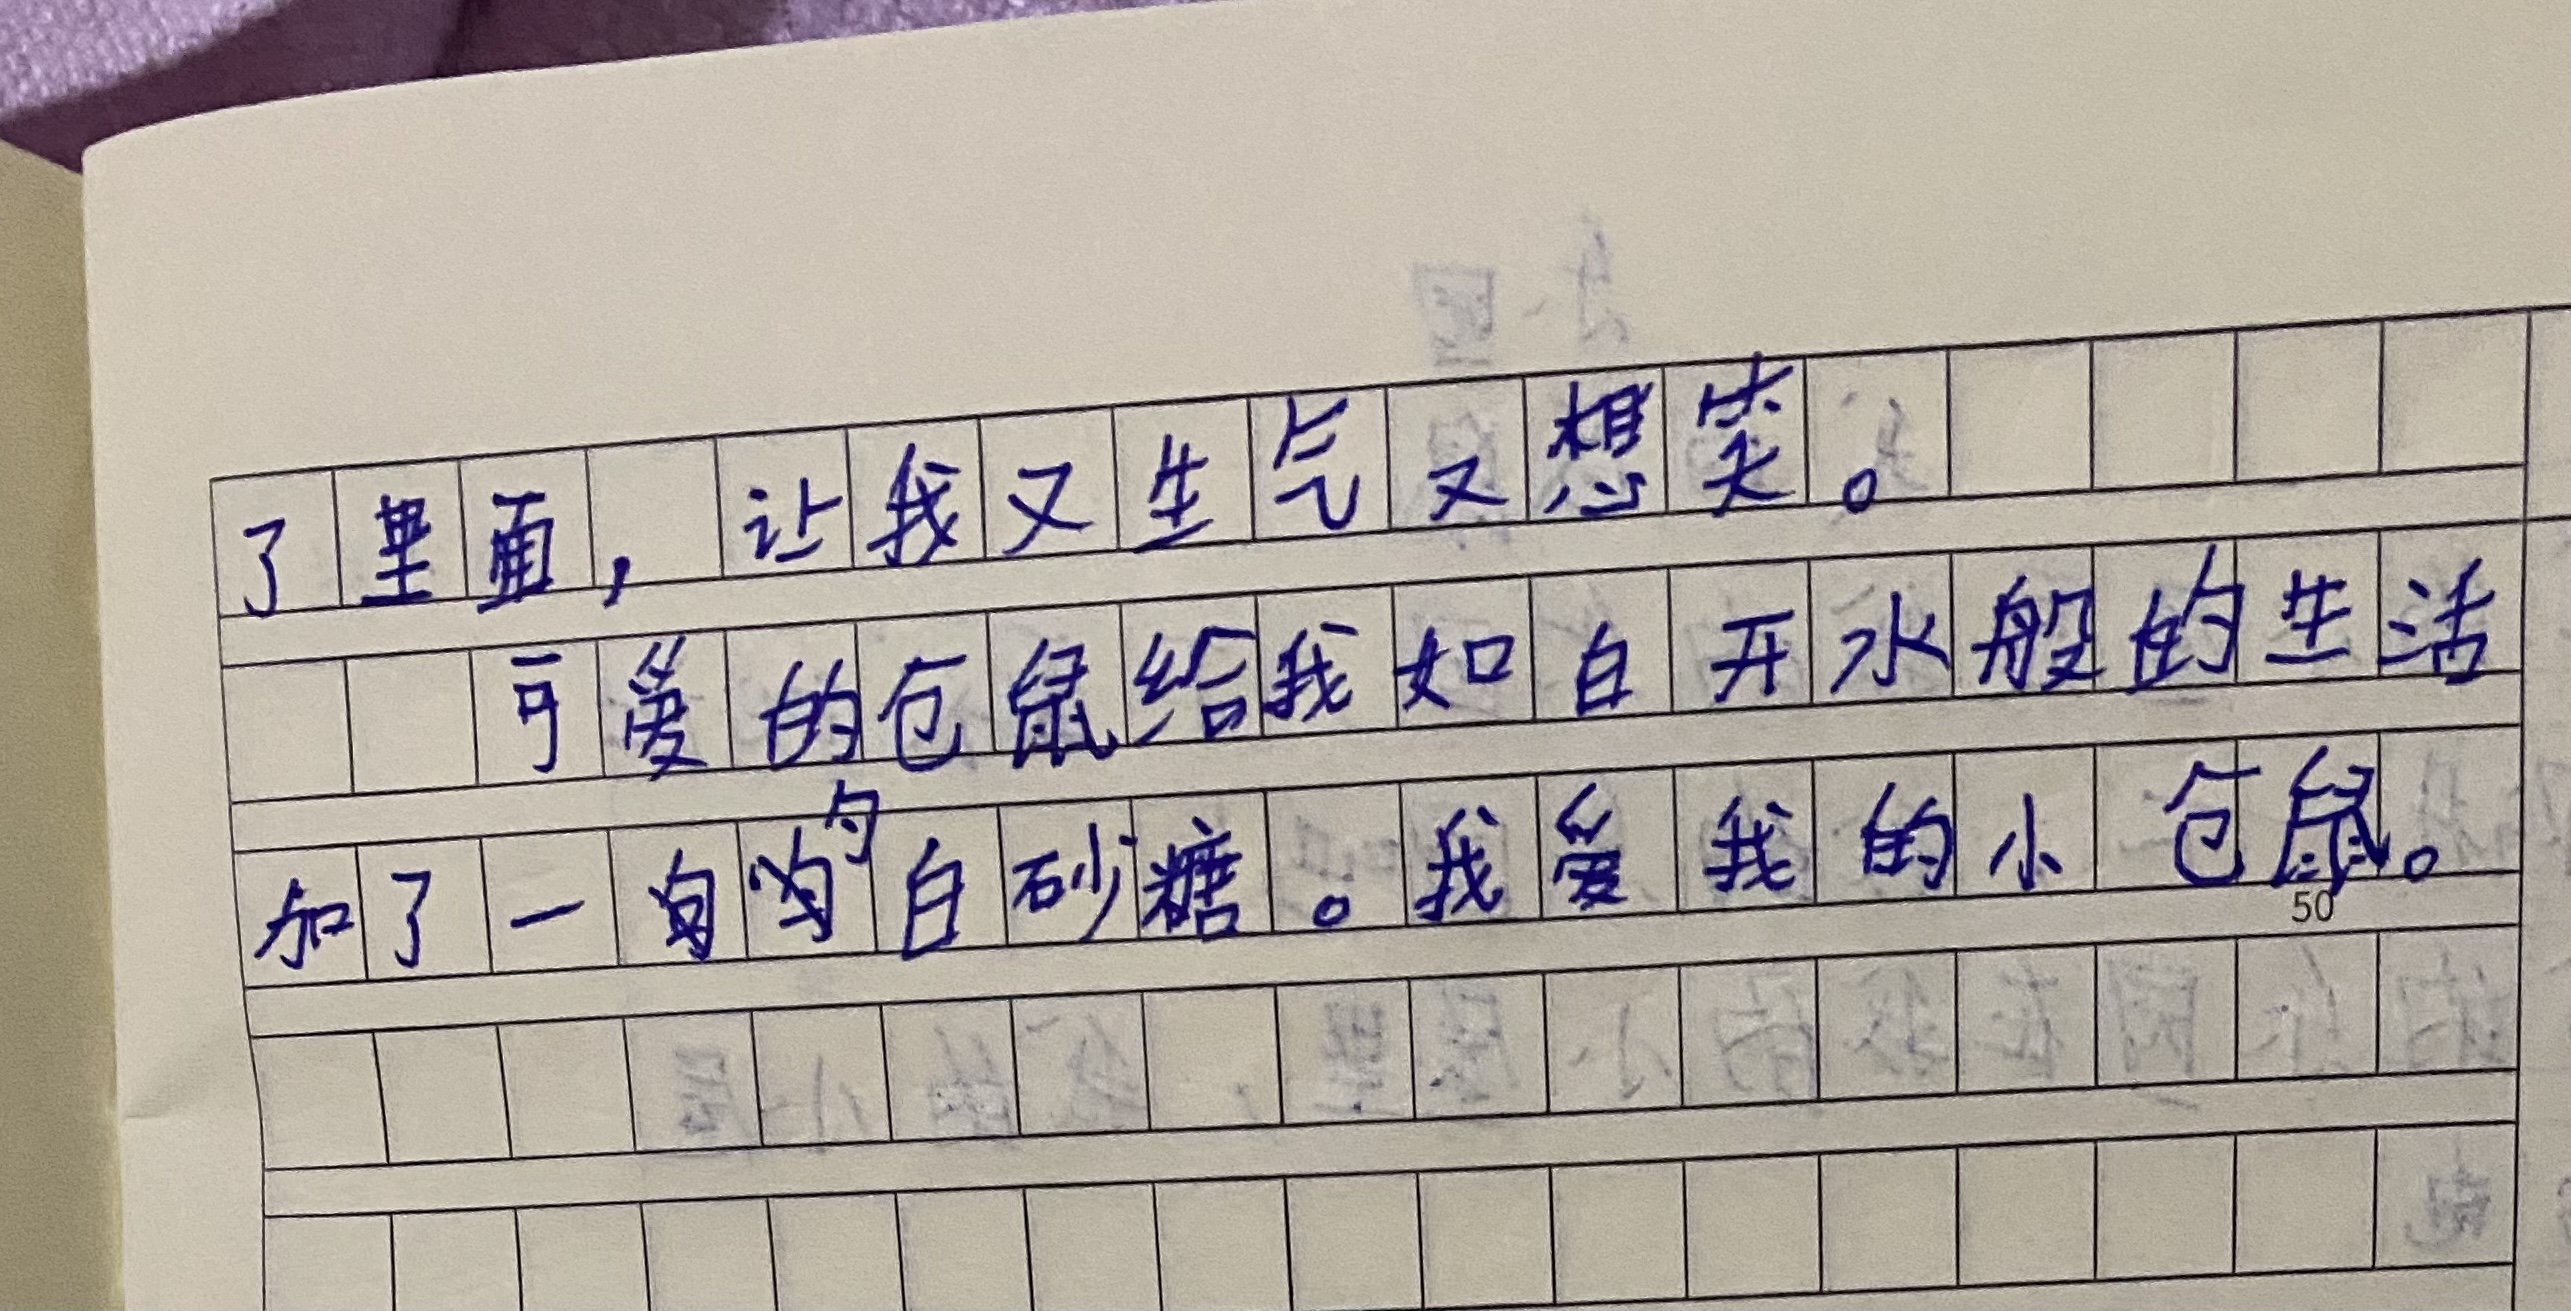 了里面，让我又生气又想笑。
可爱的仓鼠给我如白开水般的生活
加了一勺勺白砂糖。我爱我的小仓鼠。
50